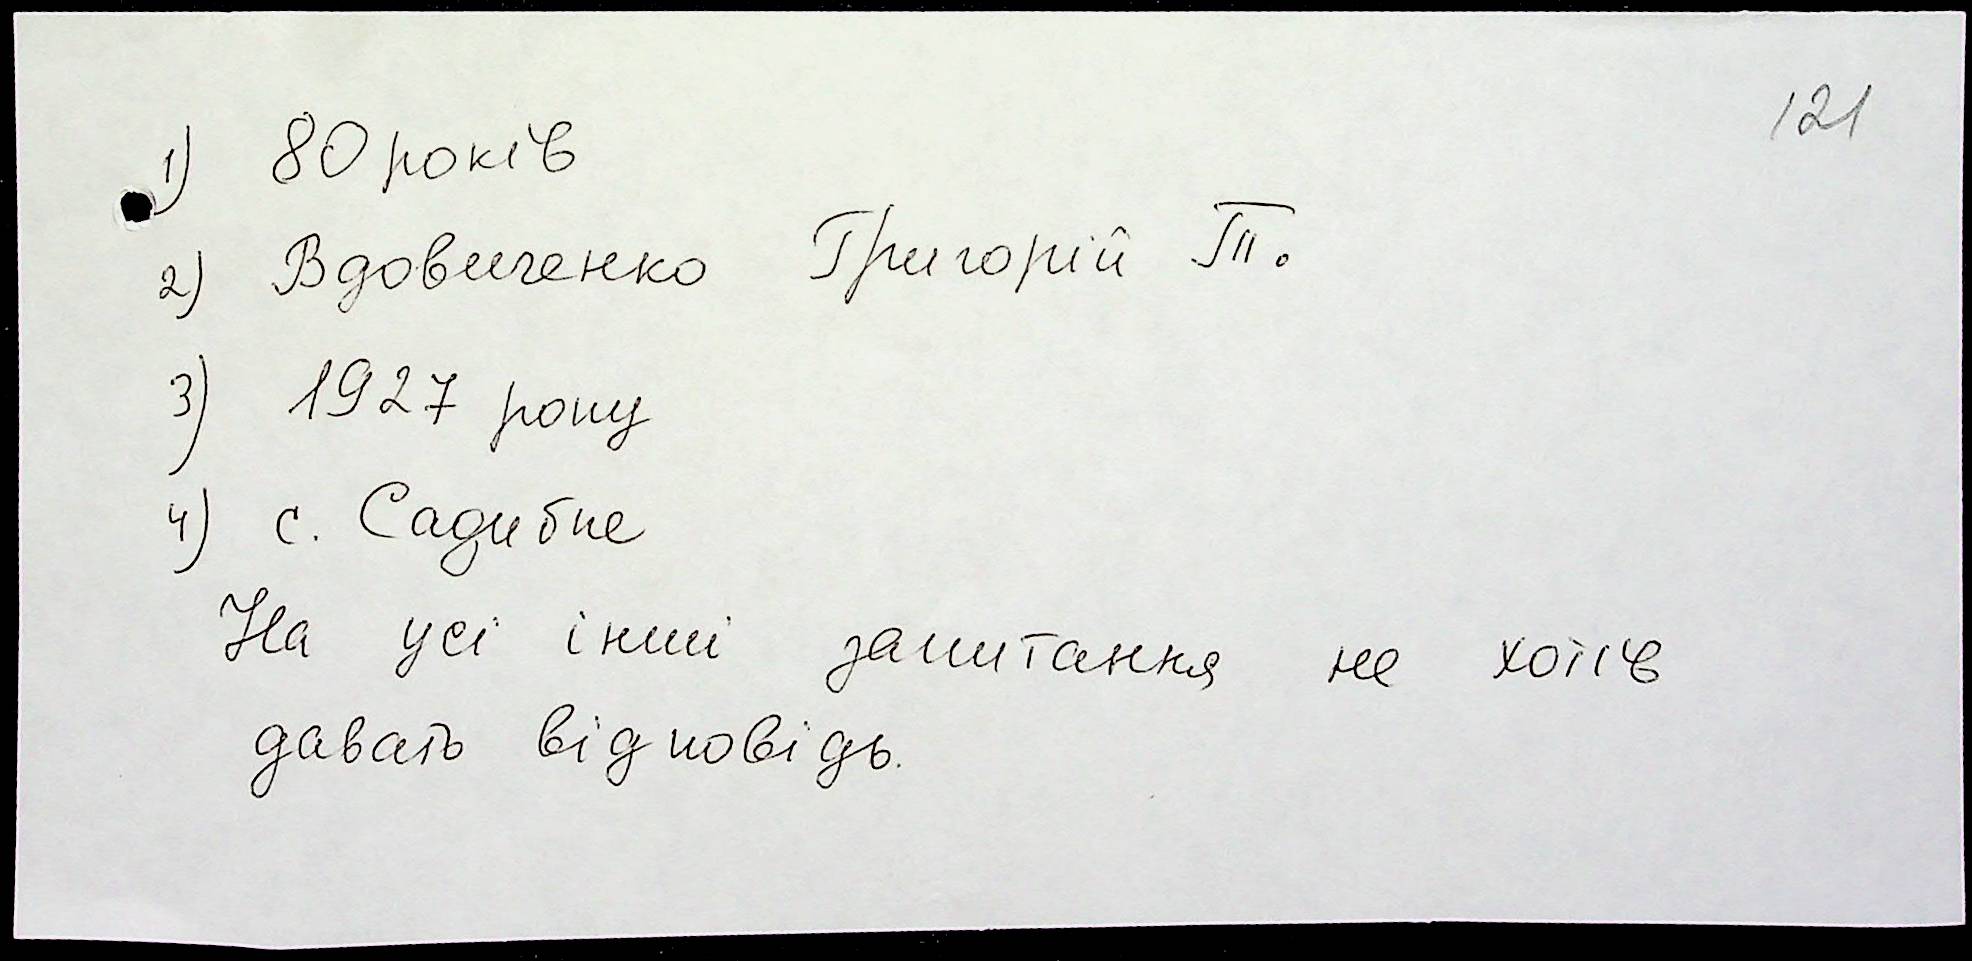 121
1) 80 років
2) Вдовиченко Григорій Т.
3) 1927 року
4) с. Садибне
На усі інші запитання не хотів
давать відповідь.